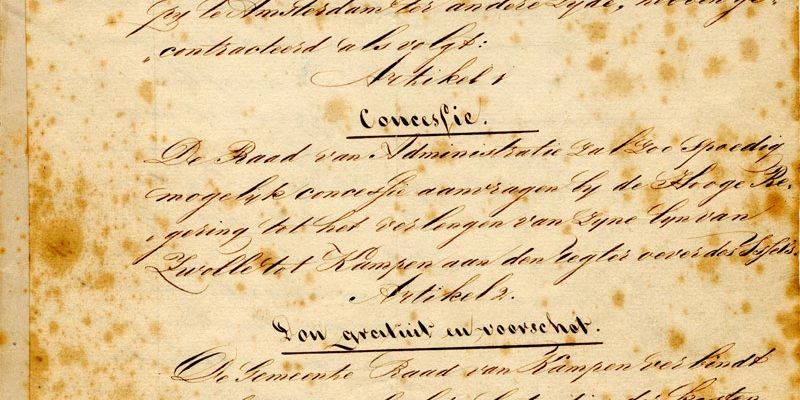 py te Amsterdam ter andere Zyde, hebben ge-
contracteerd als volgt:
Artikel 1
Concessie.
De Raad van Administratie zal zoo spoedig
mogelyk concessie aanvragen by de Hooge Re-
gering tot het verlengen van Zyne lyn van
Zwolle tot Kampen aan den regter oever des IJssels.
Artikel 2.
Don gratuit en voorschot.
De Gemeente Raad van Kampen verbindt
kosten